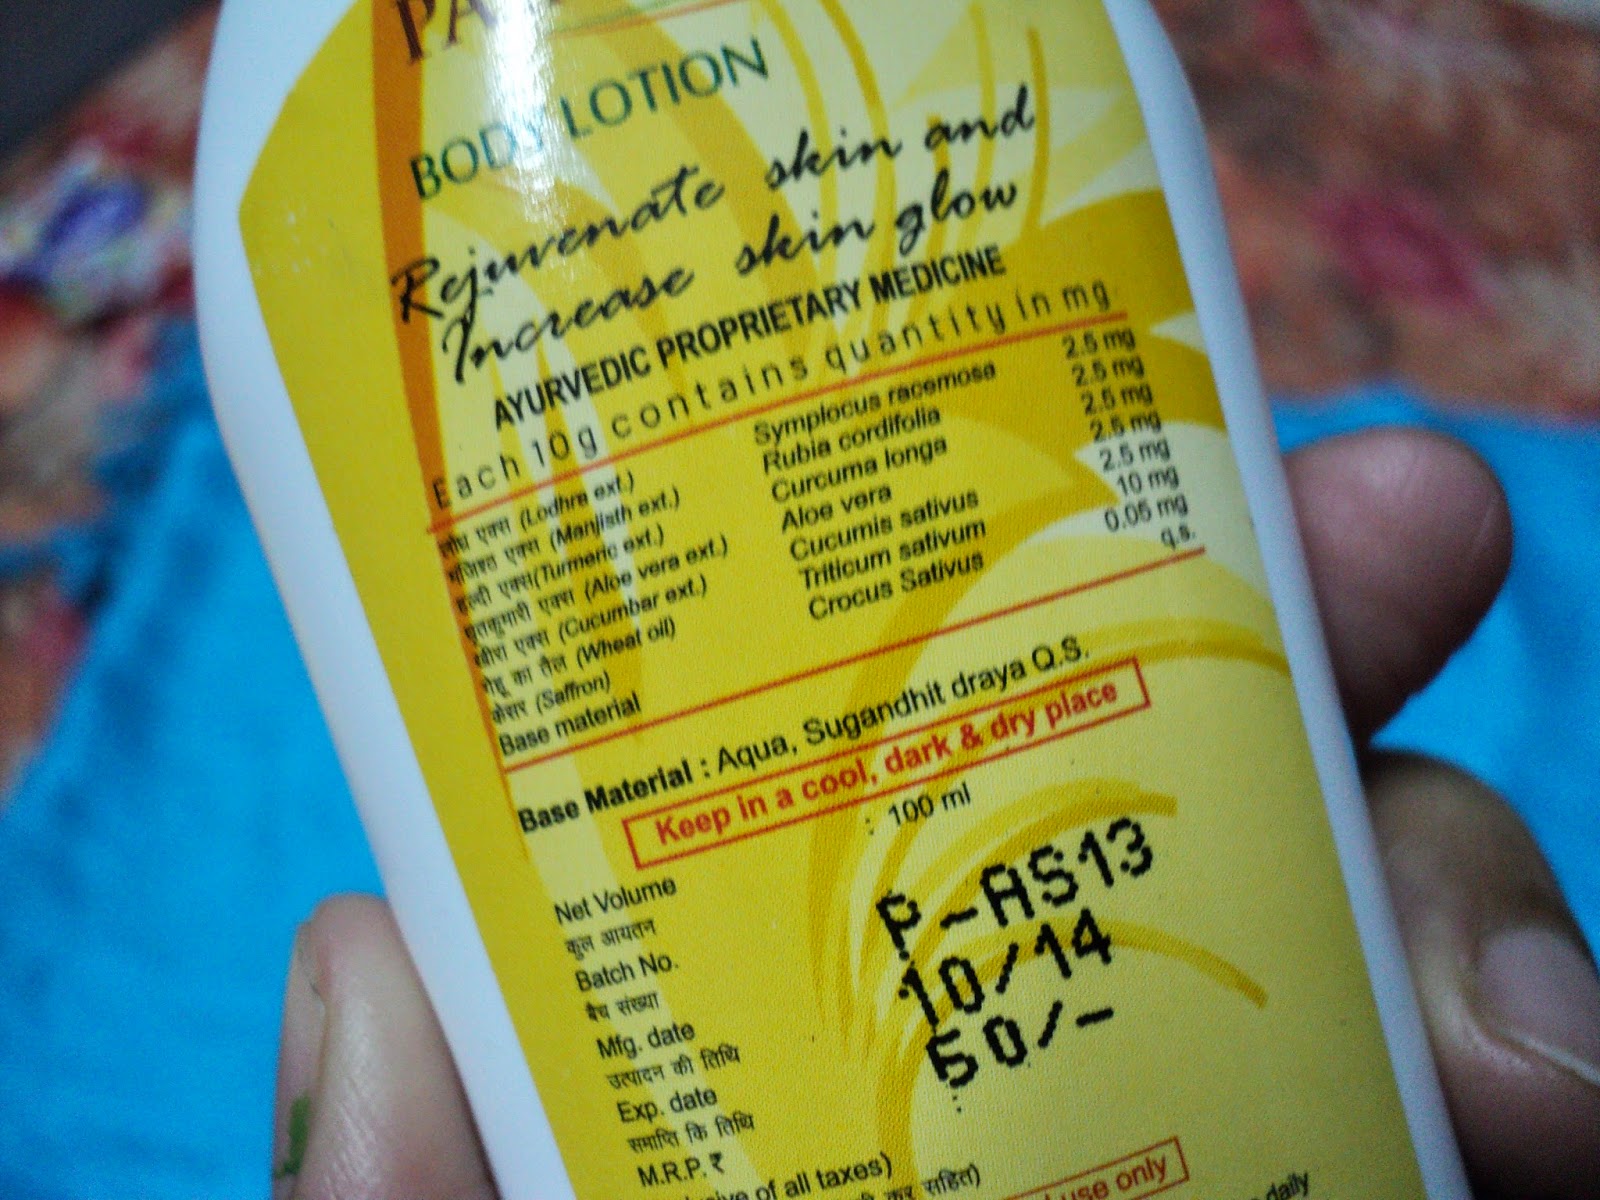 BODY LOTION
Rejuvenate skin and
Increase skin glow
AYURVEDIC PROPRIETARY MEDICINE
Each 10g contains quantity in mg
लोध्र एक्स (Lodhra ext.) Symplocus racemosa 2.5 mg
मंजिश्त एक्स (Manjisth ext.) Rubia cordifolia 2.5 mg
हल्दी एक्स(Turmeric ext.) Curcuma longa 2.5 mg
घृतकुमारी एक्स (Aloe vera ext.) Aloe vera 2.5 mg
खीरा एक्स (Cucumbar ext.) Cucumis sativus 2.5 mg
गेहू का तैल (Wheat oil) Triticum sativum 10 mg
केसर (Saffron) Crocus Sativus 0.05 mg
Base material q.s.
Base Material : Aqua, Sugandhit draya Q.S.
Keep in a cool, dark & dry place
Net Volume : 100 ml
कुल आयतन
Batch No. P-AS13
बैच संख्या
Mfg. date 10/14
उत्पादन की तिथि
Exp. date 50/-
समाप्ति कि तिथि
M.R.P. ₹ :
of all taxes)
कर सहित)
use only
daily